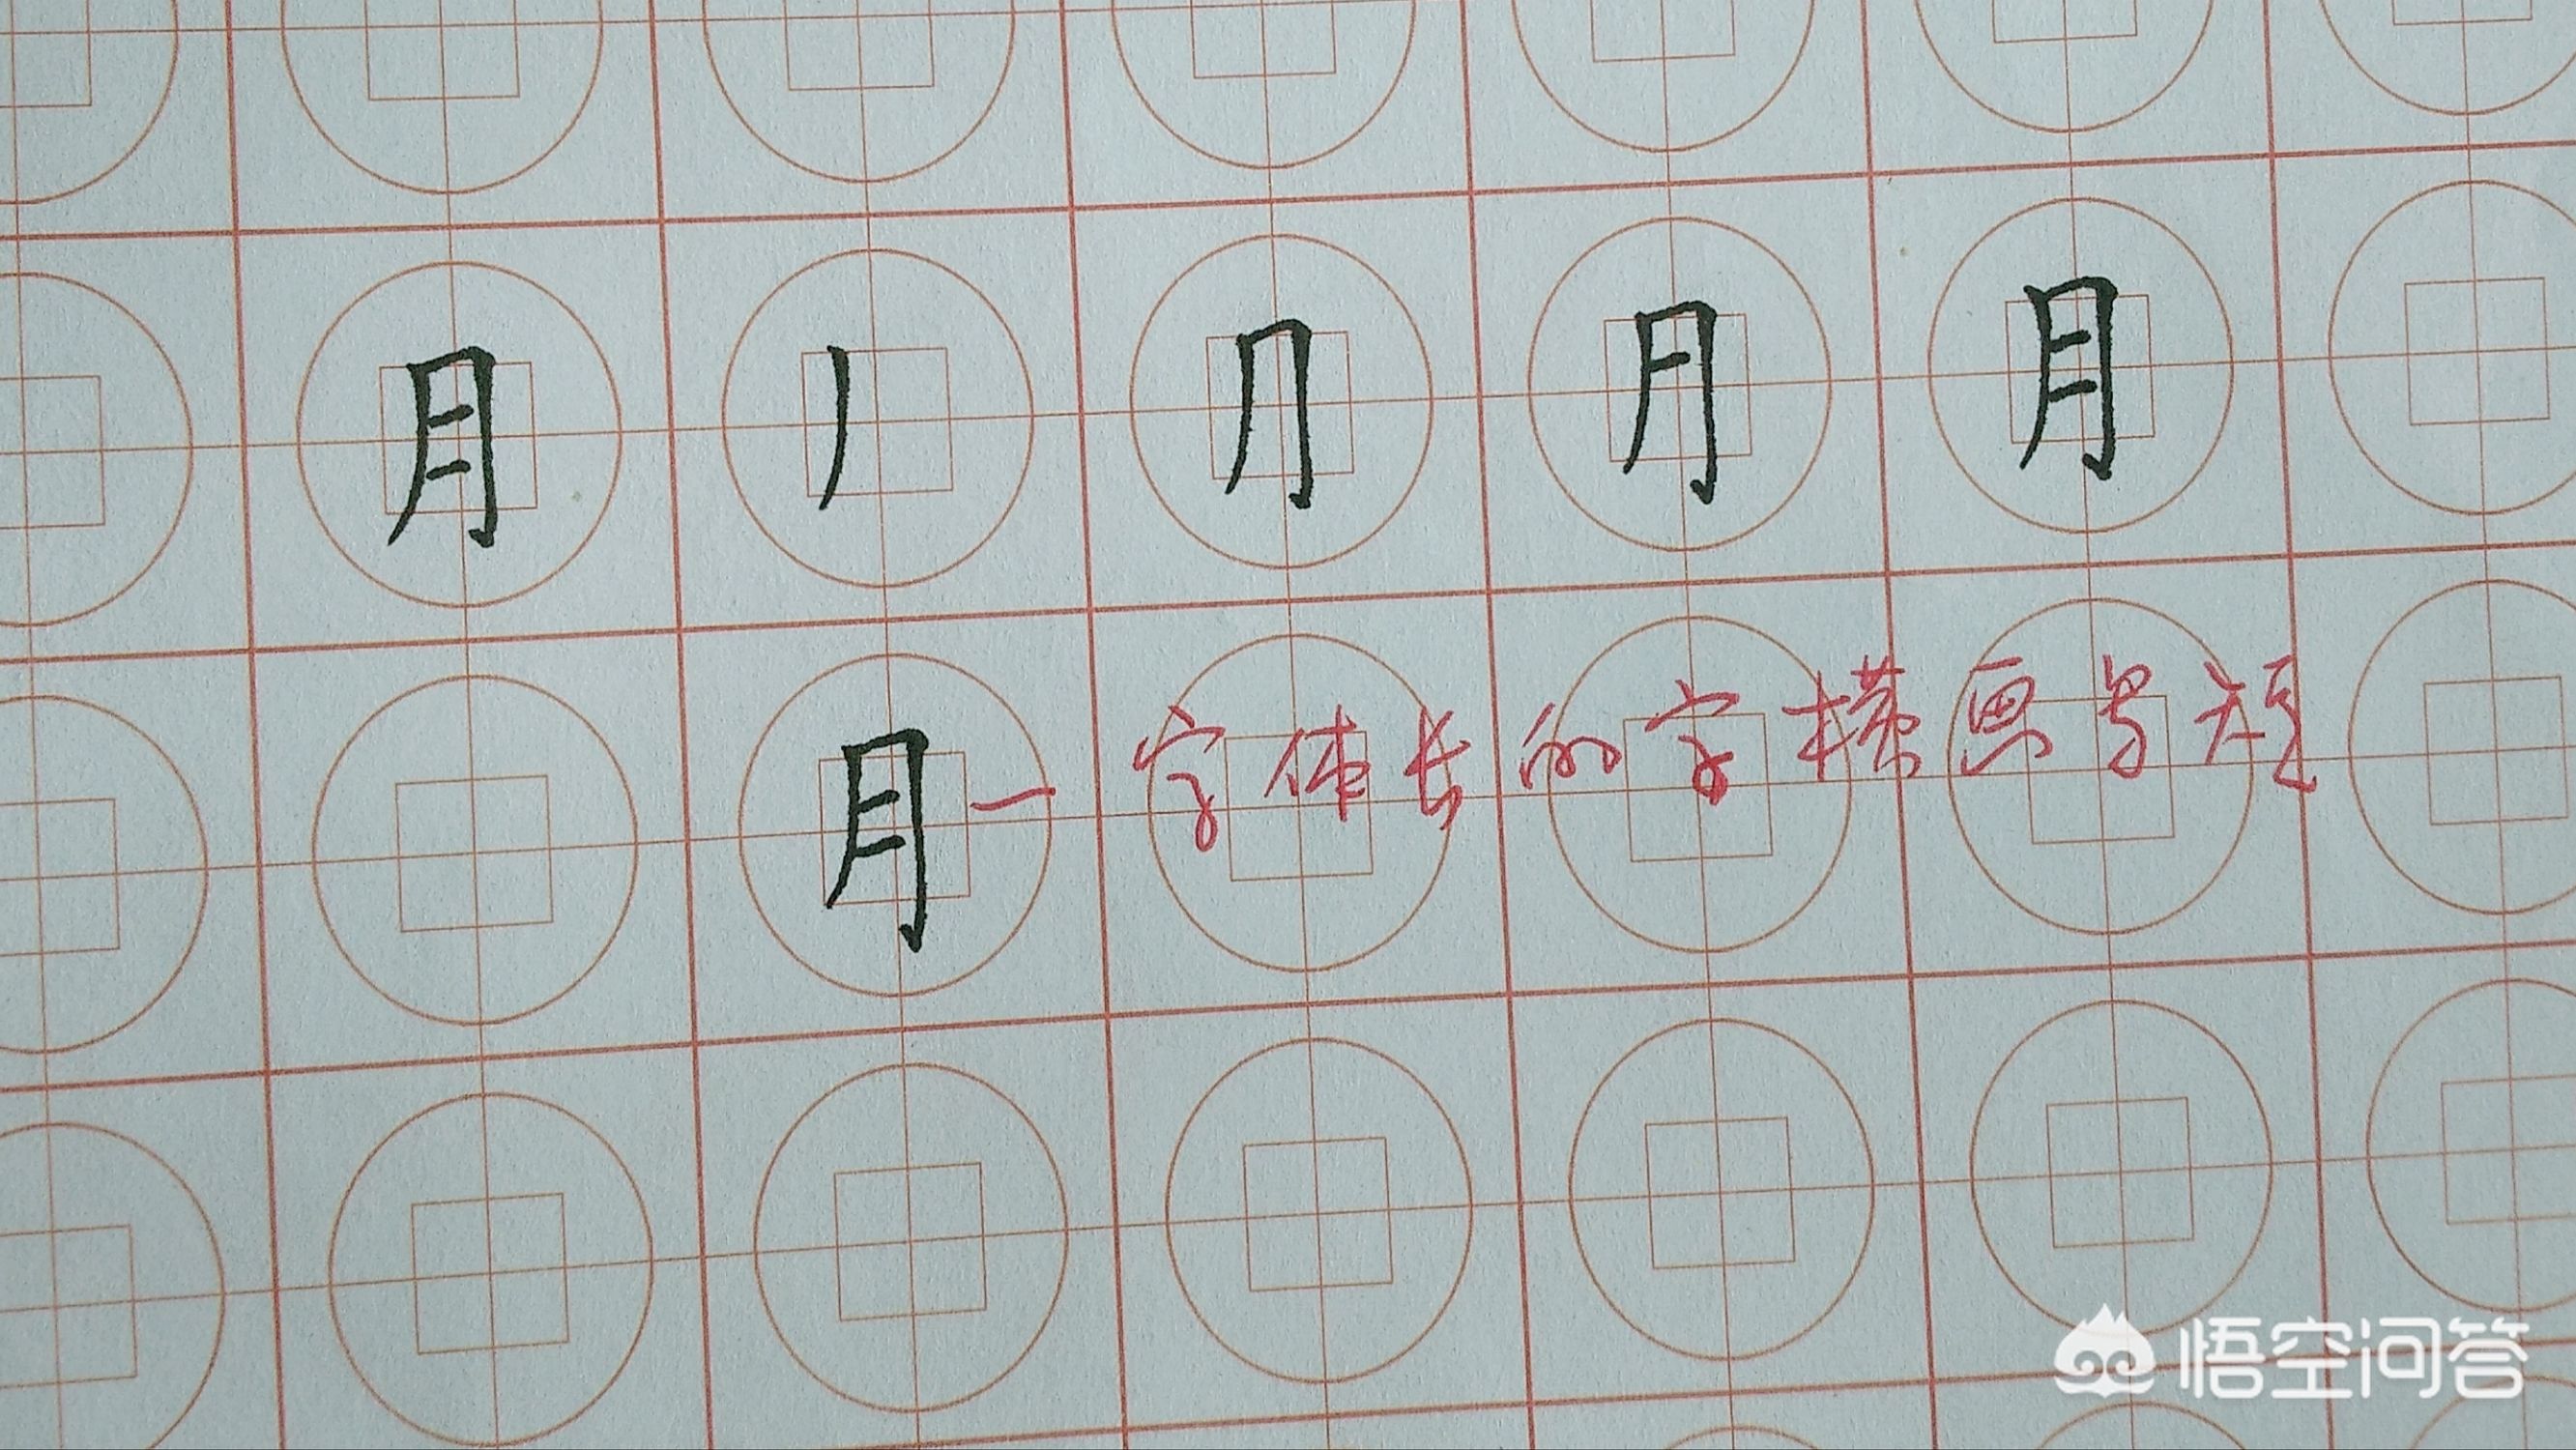 月 丿 ⺆ 月 月
月一字体长的字横画写短
悟空问答